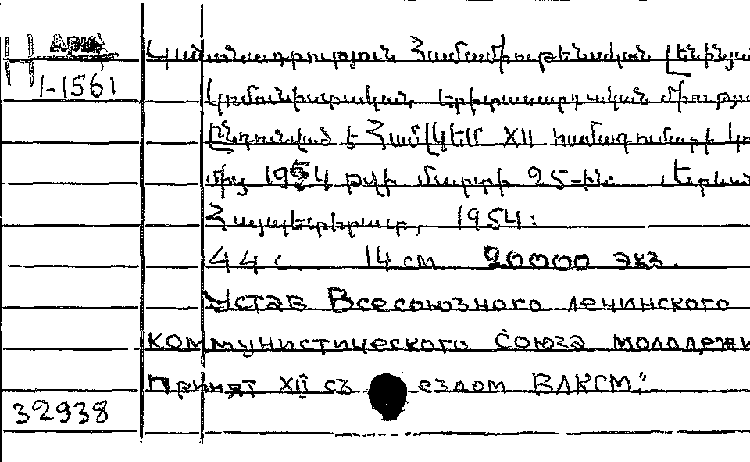 Կանոնադրություն Համամիութենական լենինյան
1-1561
կոմունիստական երիտասարդական միության
Ընդունված է ՀամԼԿԵՄ XII համագումարի կող
մից 1954 թվի մարտի 25-ին: Երևան
Հայպետհրատ, 1954:
44 14 см 20000 экз.
Устав Всесоюзного ленинского
коммунистического Союза молодежи
Принят XII съ ездом ВЛКСМ."
32938